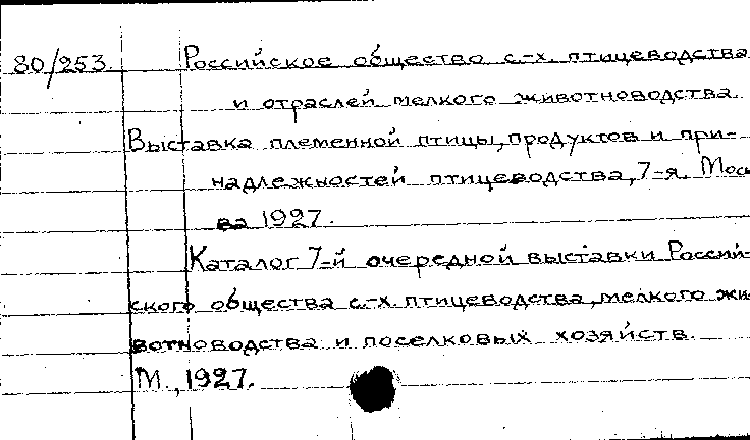 80/253. Российское общество с.-х. птицеводства
и отраслей мелкого животноводства.
Выставка племенной птицы, продуктов и при-
надлежностей птицеводства, 7-я. Моск
ва 1927.
Каталог 7-й очередной выставки Россий-
ского общества с.-х. птицеводства, мелкого жи
вотноводства и поселковых хозяйств.
М., 1927.